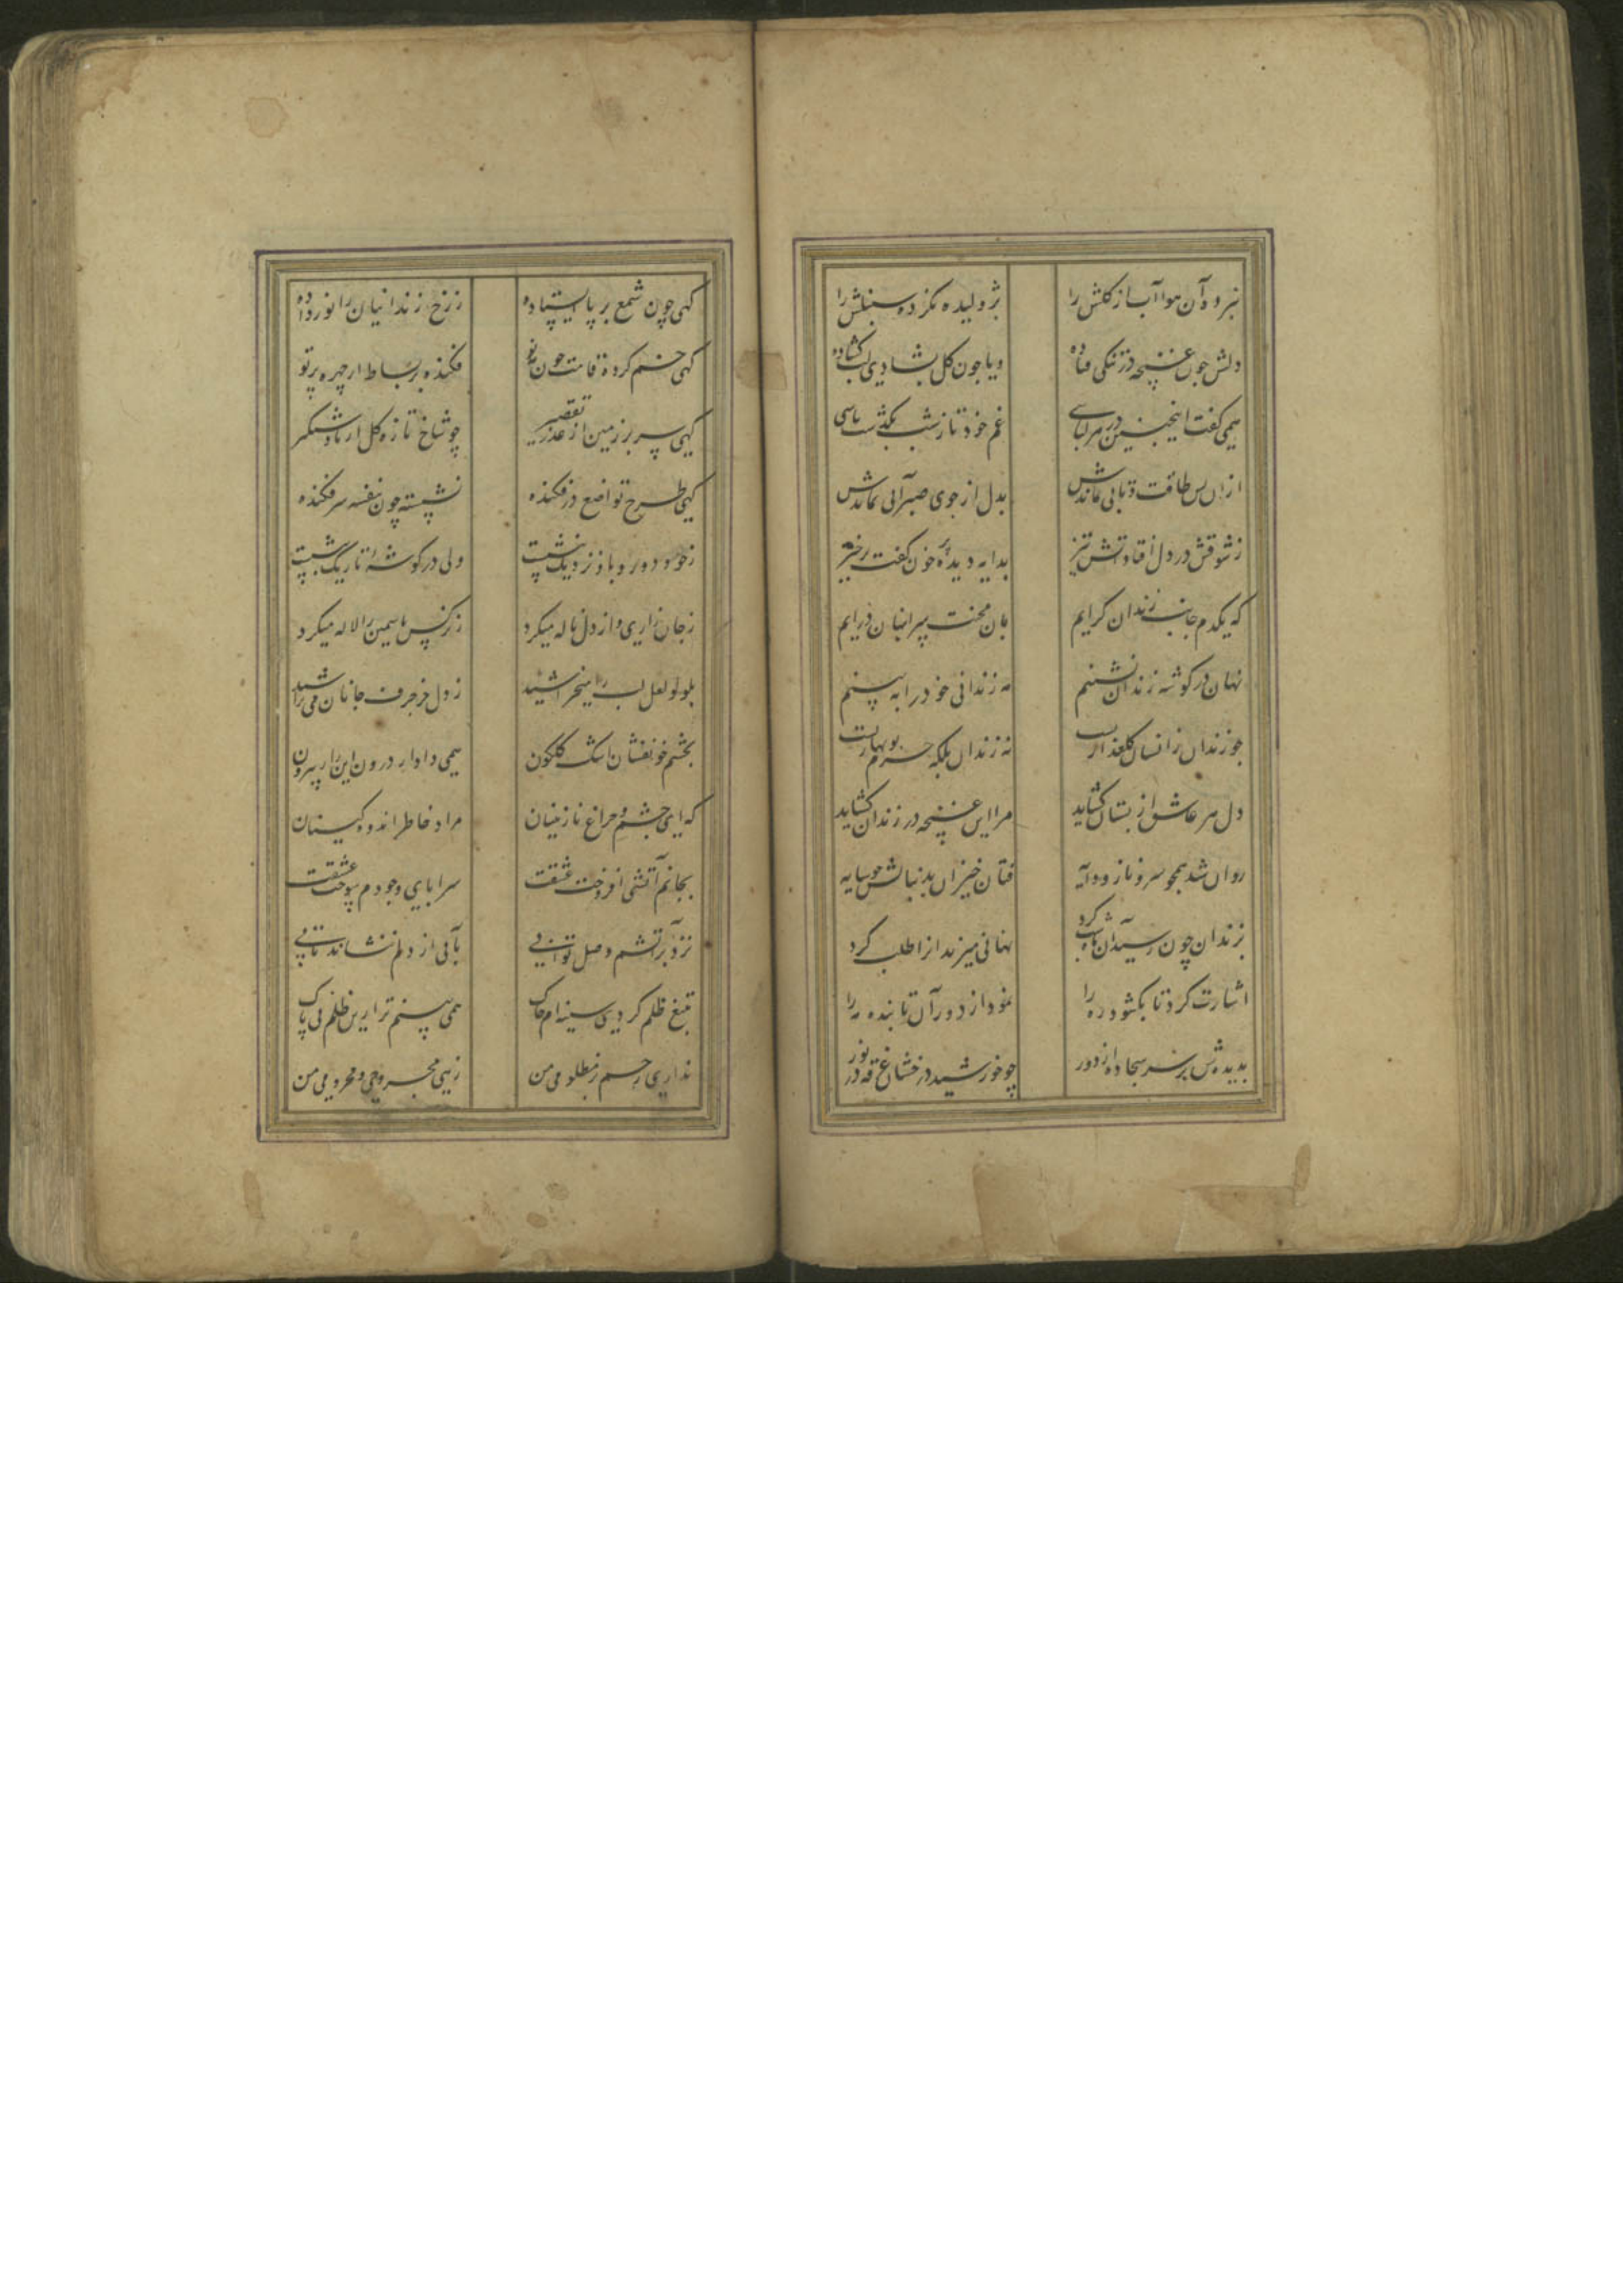 نبرده آن هوا آب از کلش را
ژولیده نکرده سنبلش را
دلش جون غنچه در تنکی فتاده
و یا جون کل بشادی لب کشاده
همی کفت اینچنین در هر لباسی
غم خود تا ز شب بکذشت پاسی
ازان پس طاقت و تابی نماندش
بدل از جوی صبر آبی نماندش
ز شوقش در دل افتاد آتش تیز
بدایه دیده پر خون کفت برخیز
که یکدم جانب زندان کرایم
بان محنت سرا پنهان درایم
نهان در کوشه زندان نشینم
مه زندانی خود را به بینم
جو زندان زانسان کلعذاریست
نه زندان بلکه خرم نوبهاریست
دل هر عاشق از بستان کشاید
مرا این غنچه در زندان کشاید
روان شد همچو سرو ناز و دایه
فتان خیزان بدنبالش جو سایه
بزندان چون رسید آن ماه شبکرد
نهانی میر زندان را طلب کرد
اشارت کرد تا بکشود در را
نمود از دور آن تابنده مه را
بدیدش بر سر سجاده از دور
چو خورشید درخشان غرقه در نور
کهی چون شمع بر پا ایستاده
ز رخ زندانیان را نور داده
کهی خم کرده قامت چون مه نو
فکنده بر بساط از چهره پرتو
کهی سر بر زمین از عذر تقصیر
چو شاخ تازه کل از باد شبکیر
کهی طرح تواضع در فکنده
نشسته چون بنفشه سر فکنده
ز خود دور و باو نزدیک بنشست
ولی در کوشهٔ تاریک بنشست
ز جان زاری و از دل ناله میکرد
ز نرکس یاسمین را لاله میکرد
بلولو لعل لب را میخراشید
ز دل حرف جانان می تراشید
بچشم خونفشان اشک کلکون
همی داد از درون این راز بیرون
که ای چشم و چراغ نازنینان
مراد خاطر اندوه کینان
بجانم آتشی افروخت عشقت
سراپای وجودم سوخت عشقت
نزد بر آتشم وصل تو آبی
بآبی از دلم ننشاند تابی
بتیغ ظلم کردی سینه ام چاک
همی بینم ترا زین ظلم بی باک
نداری رحم بر مظلومی من
زهی مجروحی و محرومی من